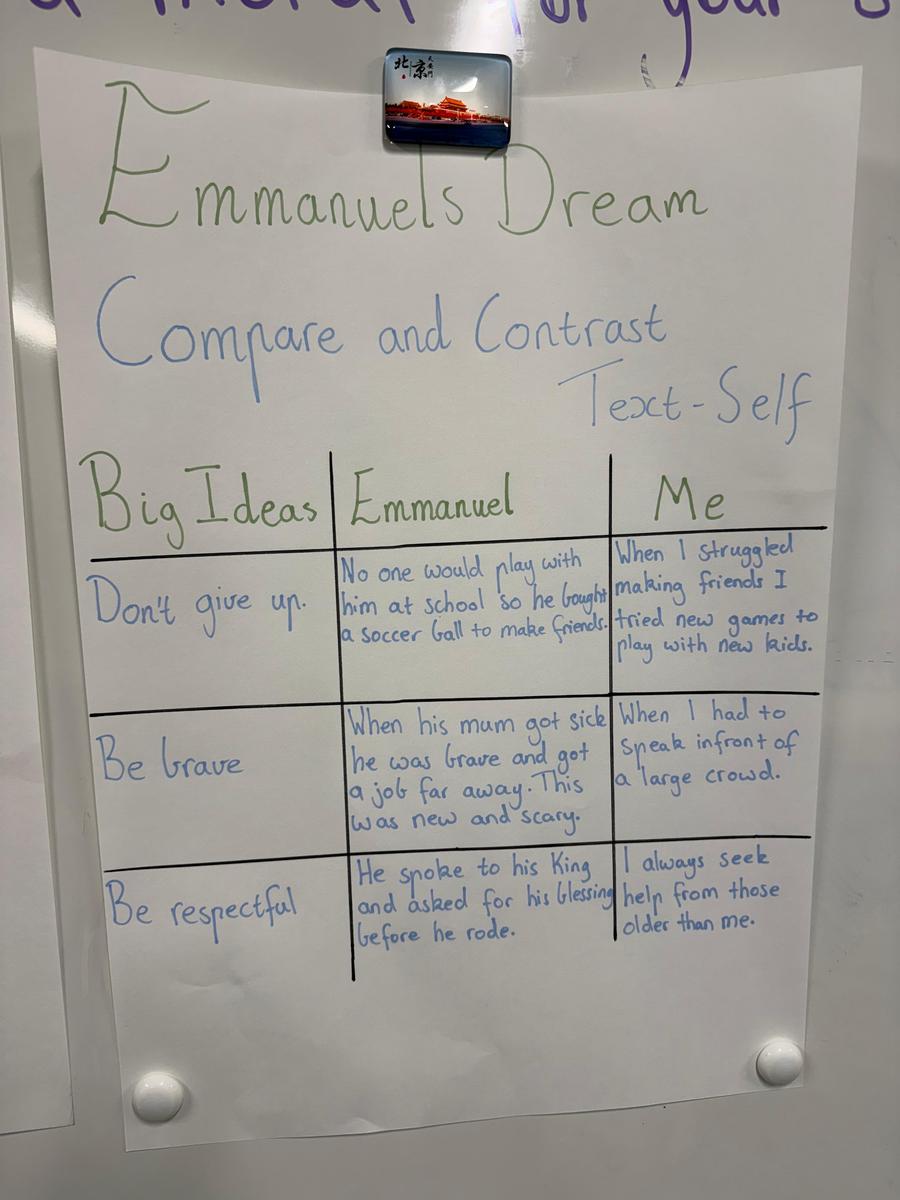 a moral for your s
北京
Emmanuels Dream
Compare and Contrast
Text-Self
Big Ideas
Emmanuel
Me
Don't give up.
No one would play with
him at school so he bought
a soccer ball to make friends.
When I struggled
making friends I
tried new games to
play with new kids.
Be brave
When his mum got sick
he was brave and got
a job far away. This
was new and scary.
When I had to
speak infront of
a large crowd.
Be respectful
He spoke to his King
and asked for his blessing
before he rode.
I always seek
help from those
older than me.